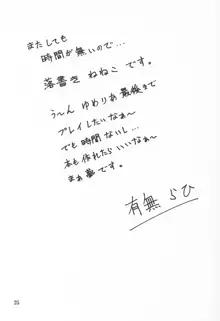 またしても
時間が無いので…
落書き ねねこ です。
う～ん ゆめりあ 最後まで
プレイしたいなぁ～
でも時間ないし…
本も作れたらいいなぁ～
まぁ夢です。
有無 らひ
25